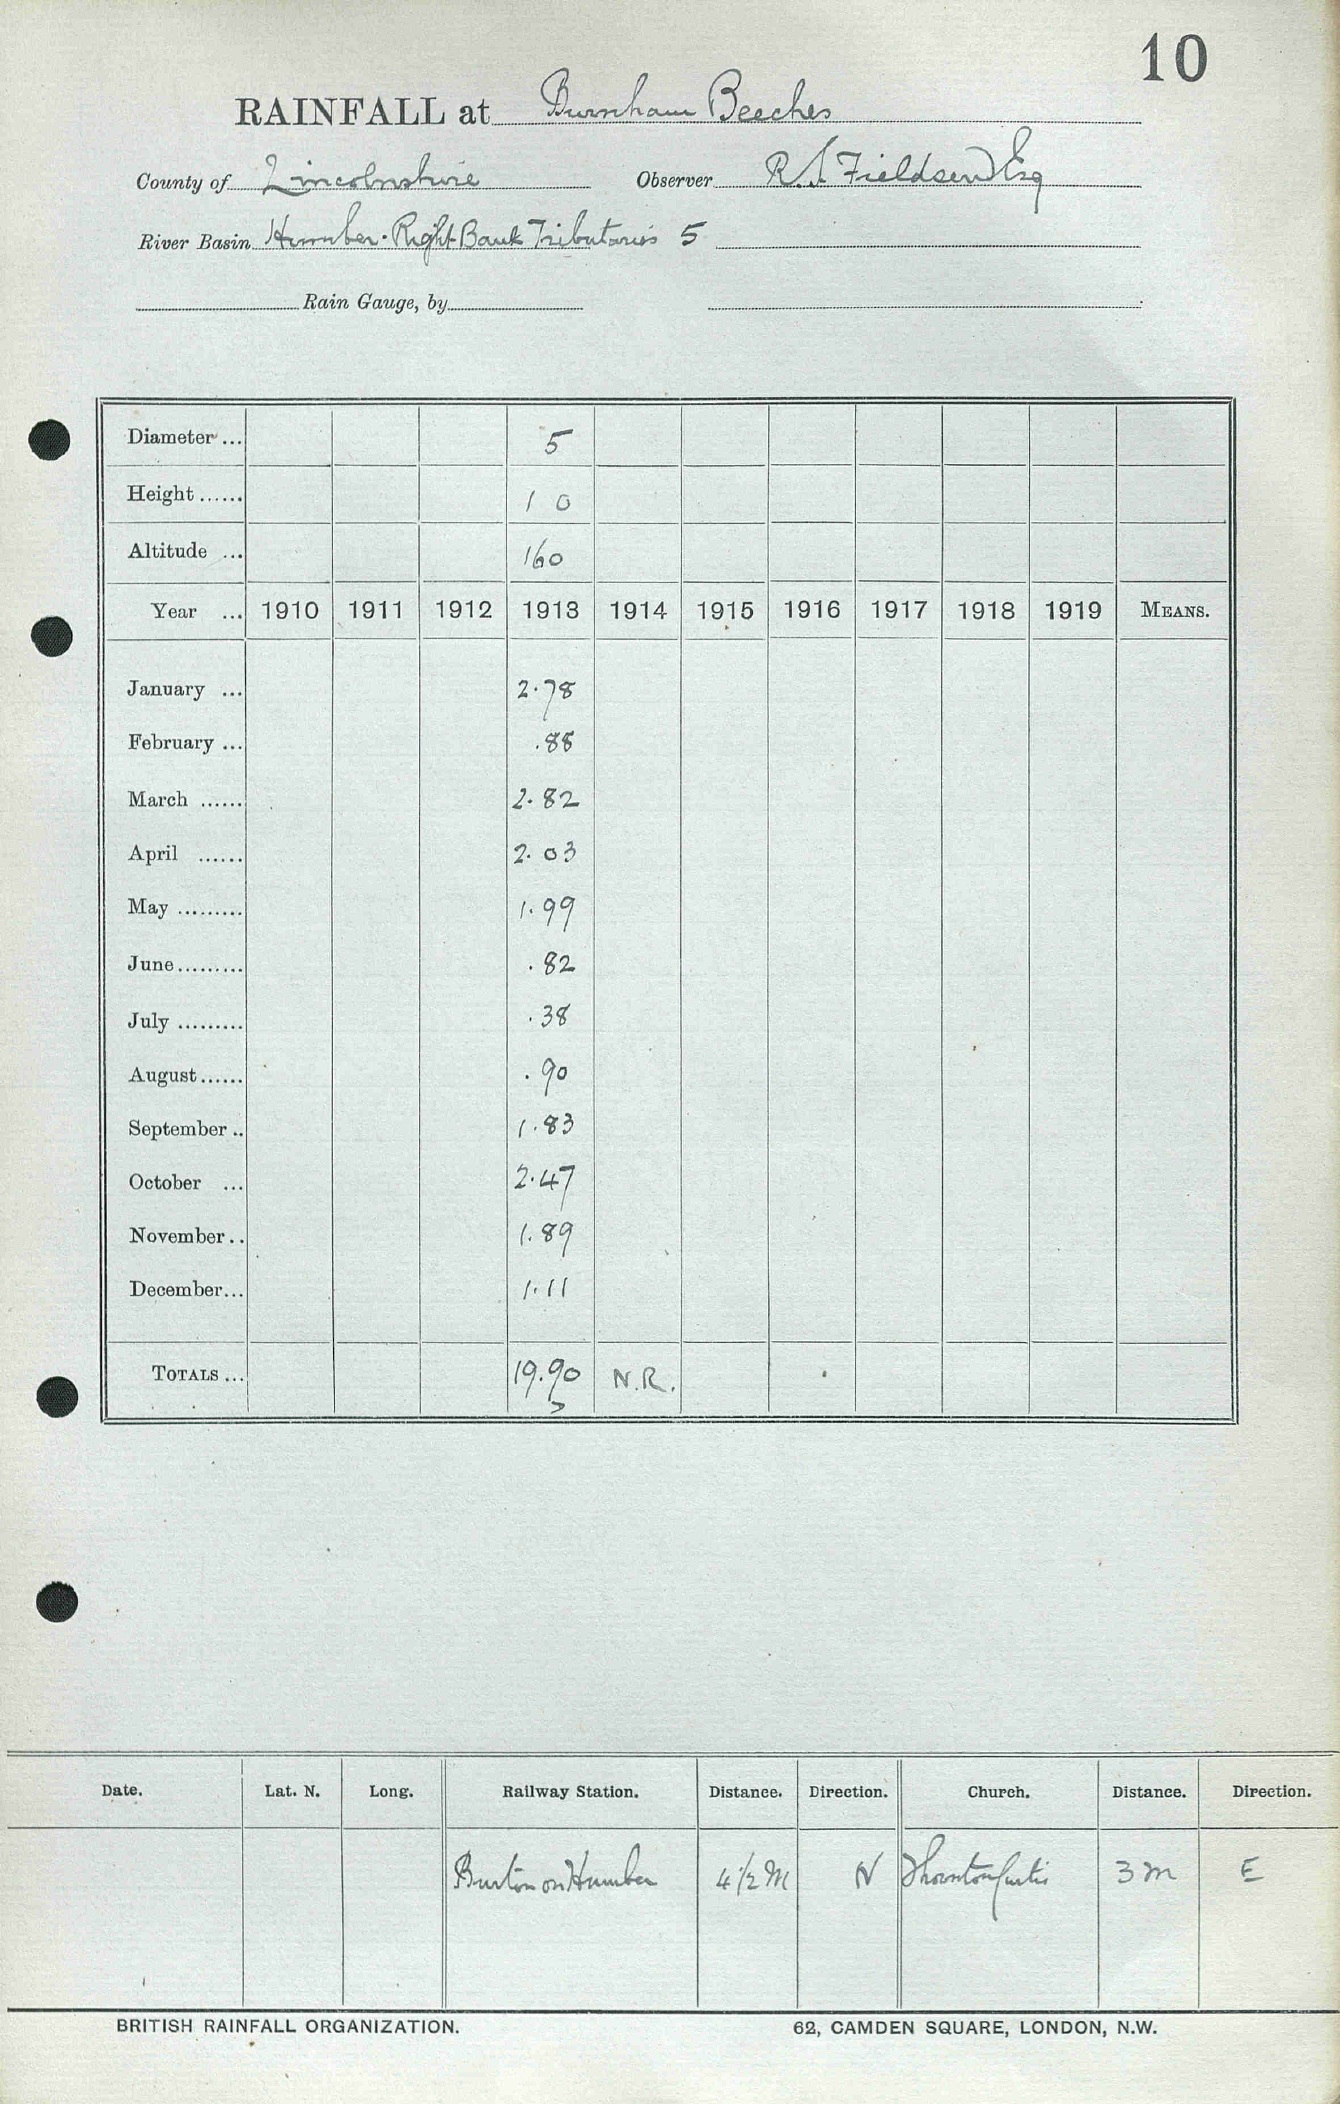 10
RAINFALL at Burnham Beeches
County of Lincolnshire Observer R.S. Fieldsend Esq
River Basin Humber. Right Bank Tributaries 5
Rain Gauge, by
Diameter ... 5
Height ...... 1 0
Altitude ... 160
Year ... 1910 1911 1912 1913 1914 1915 1916 1917 1918 1919 MEANS.
January ... 2.78
February ... .88
March ...... 2.82
April ...... 2.03
May ......... 1.99
June ......... .82
July ......... .38
August ...... .90
September .. 1.83
October ... 2.47
November .. 1.89
December ... 1.11
TOTALS ... 19.90 N.R.
Date. Lat. N. Long. Railway Station. Distance. Direction. Church. Distance. Direction.
Barton on Humber 4 1/2 M N Thornton Curtis 3 m E
BRITISH RAINFALL ORGANIZATION. 62, CAMDEN SQUARE, LONDON, N.W.